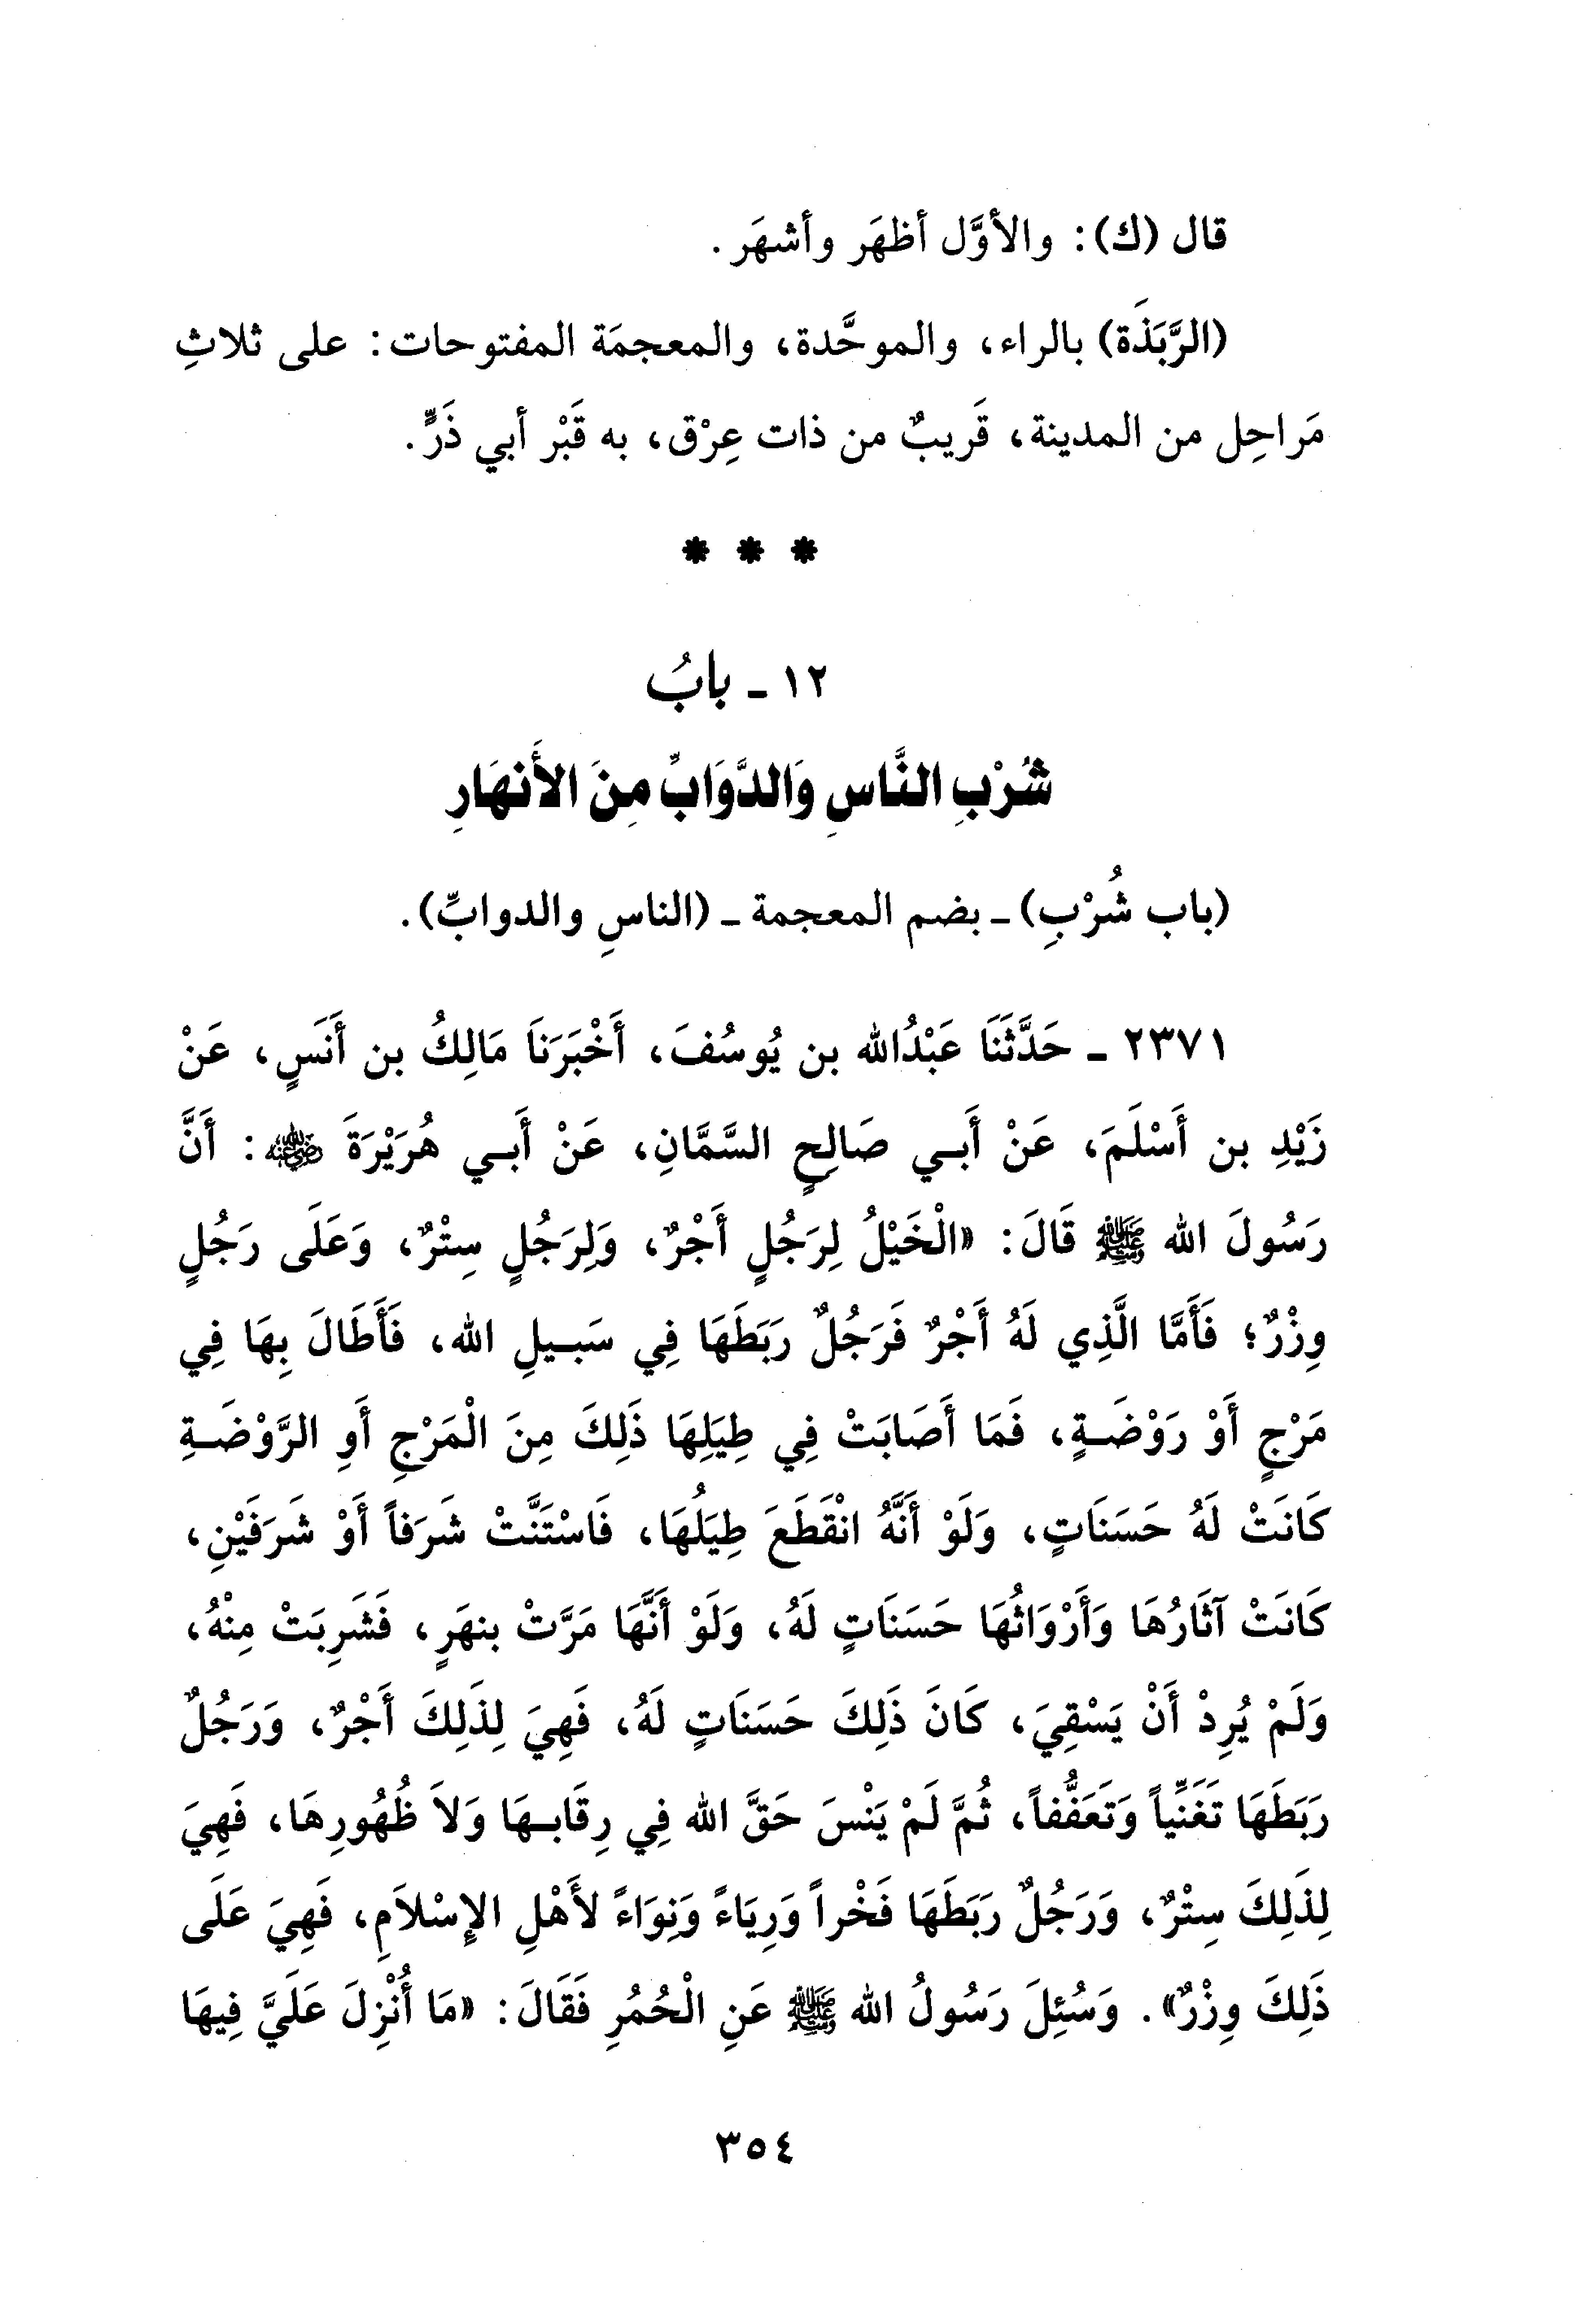 قال (ك): والأوَّل أظهَر وأشهَر.
(الرَّبَذَة) بالراء، والموحَّدة، والمعجمَة المفتوحات: على ثلاثِ
مَراحِل من المدينة، قَريبٌ من ذات عِرْق، به قَبْر أبي ذَرٍّ.
* * *
١٢ - بابُ
شُرْبِ النَّاسِ وَالدَّوَابِّ مِنَ الأَنهَارِ
(باب شُرْبِ) - بضم المعجمة - (الناسِ والدوابِّ).
٢٣٧١ - حَدَّثَنَا عَبْدُالله بن يُوسُفَ، أَخْبَرَنَا مَالِكُ بن أَنَسٍ، عَنْ
زَيْدِ بن أَسْلَمَ، عَنْ أَبي صَالِحٍ السَّمَّانِ، عَنْ أَبي هُرَيْرَةَ رضي الله عنه: أَنَّ
رَسُولَ الله ﷺ قَالَ: «الْخَيْلُ لِرَجُلٍ أَجْرٌ، وَلِرَجُلٍ سِتْرٌ، وَعَلَى رَجُلٍ
وِزْرٌ؛ فَأَمَّا الَّذِي لَهُ أَجْرٌ فَرَجُلٌ رَبَطَهَا فِي سَبيلِ الله، فَأَطَالَ بِهَا فِي
مَرْجٍ أَوْ رَوْضَةٍ، فَمَا أَصَابَتْ فِي طِيَلِهَا ذَلِكَ مِنَ الْمَرْجِ أَوِ الرَّوْضَةِ
كَانَتْ لَهُ حَسَنَاتٍ، وَلَوْ أَنَّهُ انْقَطَعَ طِيَلُهَا، فَاسْتَنَّتْ شَرَفاً أَوْ شَرَفَيْنِ،
كَانَتْ آثَارُهَا وَأَرْوَاثُهَا حَسَنَاتٍ لَهُ، وَلَوْ أَنَّهَا مَرَّتْ بنهَرٍ، فَشَرِبَتْ مِنْهُ،
وَلَمْ يُرِدْ أَنْ يَسْقِيَ، كَانَ ذَلِكَ حَسَنَاتٍ لَهُ، فَهِيَ لِذَلِكَ أَجْرٌ، وَرَجُلٌ
رَبَطَهَا تَغَنِّياً وَتَعَفُّفاً، ثُمَّ لَمْ يَنْسَ حَقَّ الله فِي رِقَابهَا وَلاَ ظُهُورِهَا، فَهِيَ
لِذَلِكَ سِتْرٌ، وَرَجُلٌ رَبَطَهَا فَخْراً وَرِيَاءً وَنِوَاءً لأَهْلِ الإِسْلاَمِ، فَهِيَ عَلَى
ذَلِكَ وِزْرٌ». وَسُئِلَ رَسُولُ الله ﷺ عَنِ الْحُمُرِ فَقَالَ: «مَا أُنْزِلَ عَلَيَّ فِيهَا
٣٥٤